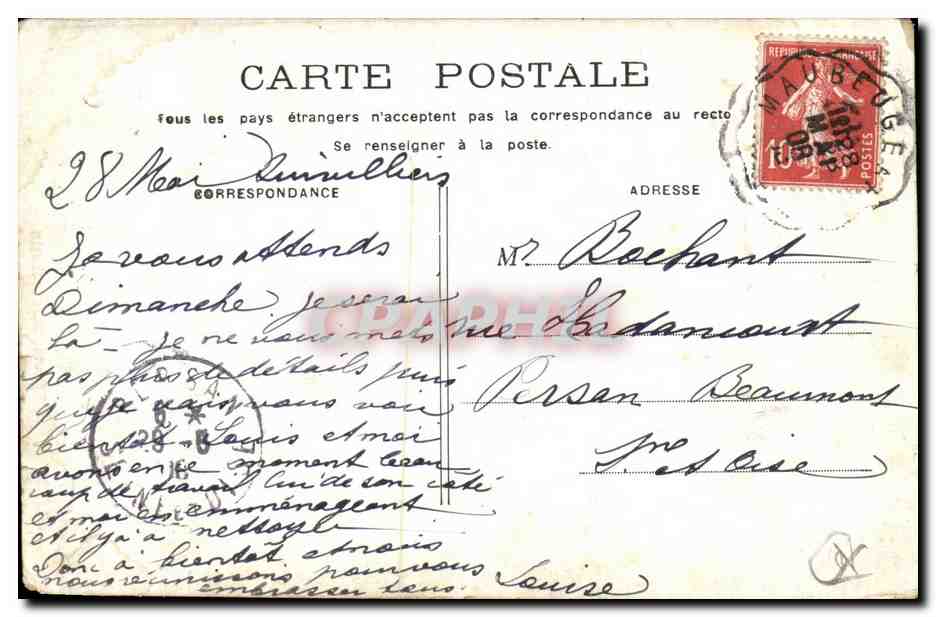 CARTE POSTALE
Tous les pays étrangers n'acceptent pas la correspondance au recto
Se renseigner à la poste.
28 Mai
CORRESPONDANCE
ADRESSE
Je vous attends
Dimanche je serai
là - je ne vous mets
pas plus de détails puis
que je vais vous voir
bientôt. Louis et moi
avons en ce moment beau
coup de travail lui de son coté
et moi en emménageant
et il y a à nettoyé
Donc à bientôt et nous
nous réunissons pour vous
embrasser tous. Louise
Mr Bochant
rue Hadancourt
Persan Beaumont
Sne et Oise
REPUBLIQUE FRANÇAISE
10
POSTES
MAUBEUGE
08
CPAPHIL